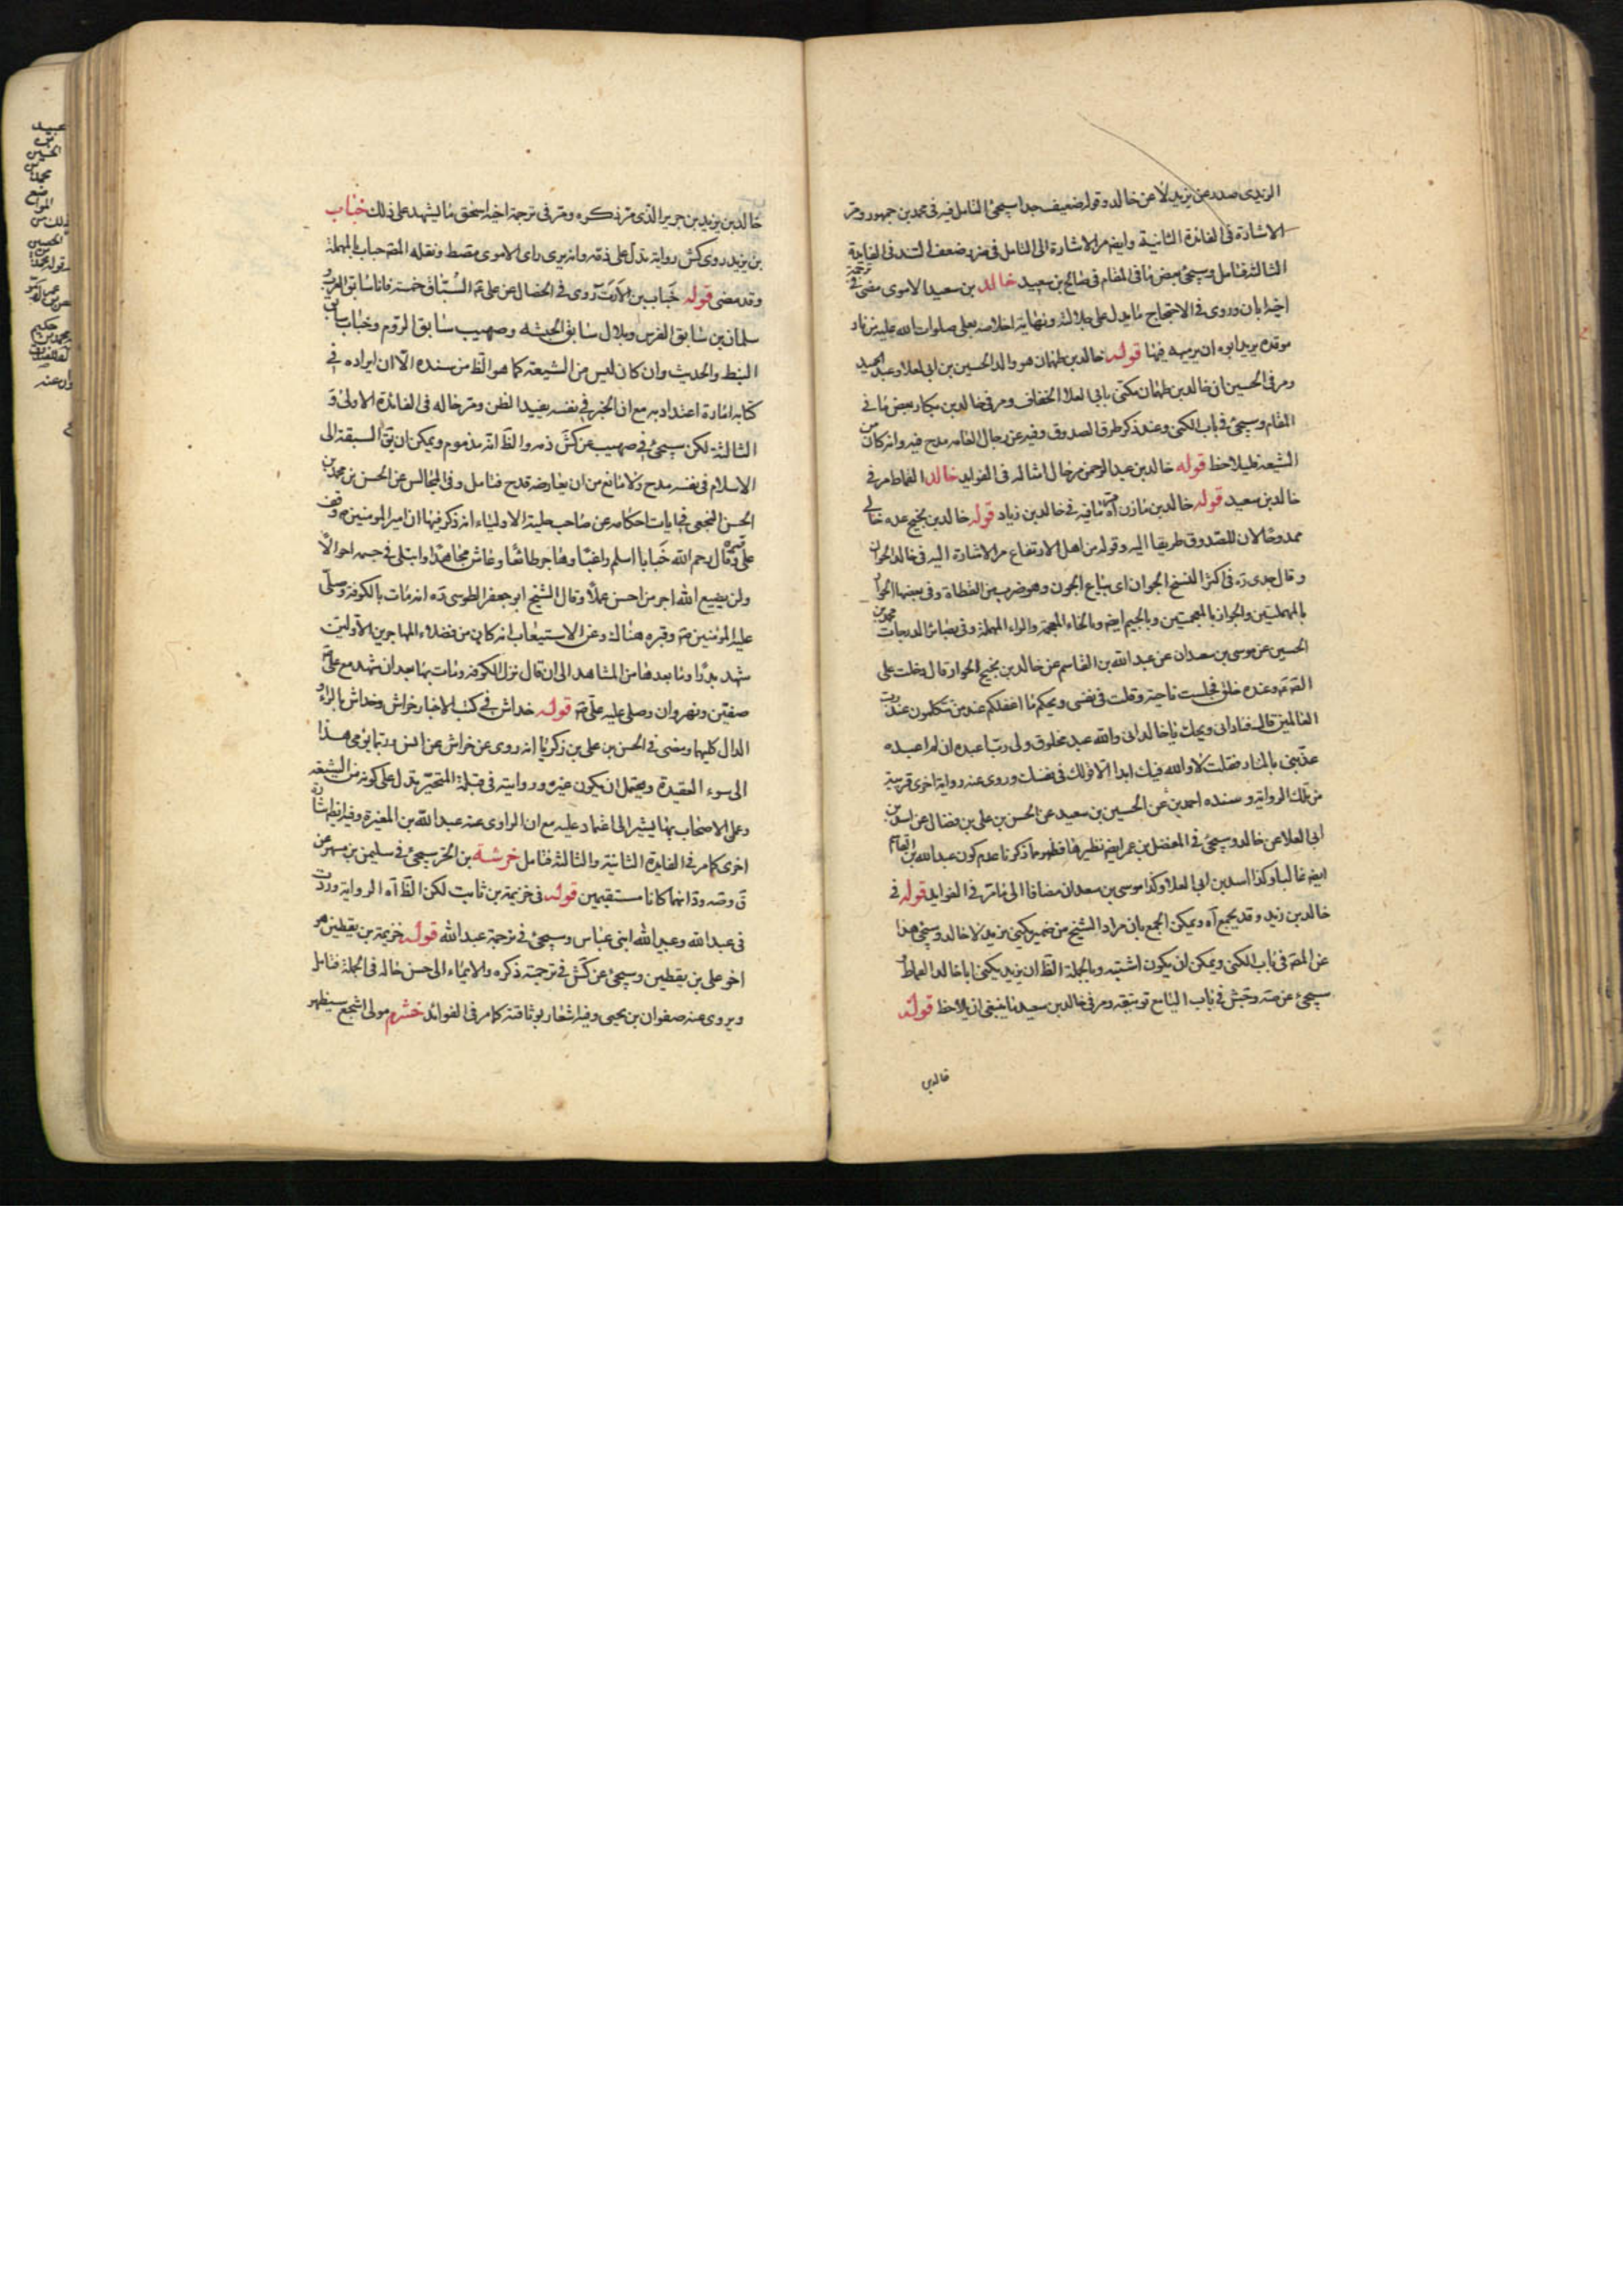 الزيدى صدر عن يزيد لا عن خالد وقوله ضعيف جدا سيجئ التامل فيه فى محمد بن جمهور ومر
الاشارة فى الفائدة الثانية وايضا مر الاشارة الى التامل فى ضرر ضعف السند فى الفايدة
الثالثة فتامل وسيجئ بعض ما فى المقام فى صالح بن سعيد خالد بن سعيد الاموى مضى فى ترجمة
اخيه ابان وروى فى الاحتجاج ما يدل على جلالته ونهاية اخلاصه بعلى صلوات الله عليه
موقده يريد ابوه ان يرميه فيها قوله خالد بن طهمان هو والد الحسين بن ابى العلا وعبد الحميد
ومر فى الحسين ان خالد بن طهمان مكنى بابى العلا الخفاف ومر فى خالد بن بكار بعض ما فى
المقام وسيجئ فى باب الكنى وعند ذكر طرق الصدوق وفيه عن رجال العامه مدح فيه وانه كان من
الشيعة فليلاحظ قوله خالد بن عبد الرحمن مر حال امثاله فى الفوايد خالد القماط مر فى
خالد بن سعيد قوله خالد بن مازن آه مر ما فيه فى خالد بن زياد قوله خالد بن نجيح عده خالى
ممدوحا لان للصدوق طريقا اليه وقوله من اهل الارتفاع مر الاشارة اليه فى خالد الجوان
وقال جدى ره فى اكثر النسخ الجوان اى بياع الجون وهو ضرب من القطاة وفى بعضها الحوار
بالمهملتين والجواز بالمعجمتين وبالجيم ايضا وبالخاء المعجمة والراء المهملة وفى بصائر الدرجات محمد بن
الحسين عن موسى بن سعدان عن عبد الله بن القاسم عن خالد بن نجيح الحوار قال دخلت على
الصادق ع وعنده خلق فجلست ناحية وقلت فى نفسى ويحكم ما اغفلكم عند من تتكلمون عند رب
العالمين قال فنادانى ويحك يا خالد انى والله عبد مخلوق ولى رب اعبده ان لم اعبده
عذبنى بالنار فقلت لا والله لا اقول فيك ابدا الا قولك فى نفسك وروى عنه رواية اخرى قريبة
من تلك الرواية وسنده احمد بن عن الحسين بن سعيد عن الحسن بن على بن فضال عن اسد بن
أبى العلا عن خالد وسيجئ فى المفضل بن عمر ايضا نظيرها فظهر ما ذكرنا عدم كون عبد الله بن القاسم
ايضا غاليا وكذا اسد بن ابى العلا وكذا موسى بن سعدان مضافا الى ما مر فى الفوايد قوله فى
خالد بن زيد وقد يجمع آه ويمكن الجمع بان مراد الشيخ من ضمير يكنى يزيد لا خالد وسيجئ هذا
عن المصنف فى باب الكنى ويمكن ان يكون اشتبه وبالجملة الظ ان يزيد يكنى ابا خالد القماط
سيجئ عن صه وجش فى باب الياء مع توثيقه ومر فى خالد بن سعيد ما ينبغى ان يلاحظ قوله
خالد بن
خالد بن يزيد بن جرير الذى مر ذكره ومر فى ترجمة اخيه اسحق ما يشهد على ذلك خباب
بن يزيد روى كش رواية تدل على ذمه وانه يرى راى الاموى مقسط ونقله المصنف حباب بالمهملة
وقد مضى قوله خباب بن الارت روى فى الخصال عن على ع السباق خمسة فانا سابق العرب و
سلمان سابق الفرس وبلال سابق الحبشه وصهيب سابق الروم وخباب سابق
النبط والحديث وان كان ليس من الشيعة كما هو الظ من سنده الا ان ايراده فى
كتابه امارة اعتداد به مع ان الخبر فى نفسه يفيد الظن ومر حاله فى الفائدة الاولى و
الثالثة لكن سيجئ فى صهيب عن كش ذمه والظ انه مذموم ويمكن ان يق السبقة الى
الاسلام فى نفسه مدح ولا مانع من ان يعارضه قدح فتامل وفى المجالس عن الحسن بن محمد بن
الحسن النجعى فى ايات احكامه عن صاحب حلية الاولياء انه ذكر فيها ان امير المومنين ع وقف
على قبره وقال رحم الله خبابا اسلم راغبا وهاجر طائعا وعاش مجاهدا وابتلى فى جسمه احوالا
ولن يضيع الله اجر من احسن عملا وقال الشيخ ابو جعفر الطوسى ره انه مات بالكوفة وصلى
عليه امير المؤمنين ع وقبره هناك وعن الاستيعاب انه كان من فضلاء المهاجرين الاولين
شهد بدرا وما بعدها من المشاهد الى ان قال نزل الكوفة ومات بها بعد ان شهد مع على ع
صفين ونهروان وصلى عليه على ع قوله خداش فى كتب الاخبار خراش وخداش بالراء و
الدال كليهما ومضى فى الحسن بن على بن زكريا انه روى عن خراش عن انس وربما يؤمى هذا
الى سوء العقيدة ويحتمل ان يكون غيره وروايته فى قبلة المتحير يدل على كونه من الشيعه
وعمل الاصحاب بها يشير الى اعتماد عليه مع ان الراوى عنه عبد الله بن المغيرة وفيه ايضا اشارة
اخرى كما مر فى الفايدة الثانية والثالثة فتامل خرشة بن الحر سيجئ فى سليمن بن مسهر عن
ق وصه ود انهما كانا مستقيمين قوله فى خزيمة بن ثابت لكن الظ آه الرواية وردت
فى عبد الله وعبيد الله ابنى عباس وسيجئ فى ترجمة عبد الله قوله خزيمة بن يقطين هو
اخو على بن يقطين وسيجئ عن كش فى ترجمته ذكره والايماء الى حسن حاله فى الجملة فتامل
ويروى عنه صفوان بن يحيى وفيه اشعار بوثاقته كما مر فى الفوائد خشرم مولى اشجع سيظهر